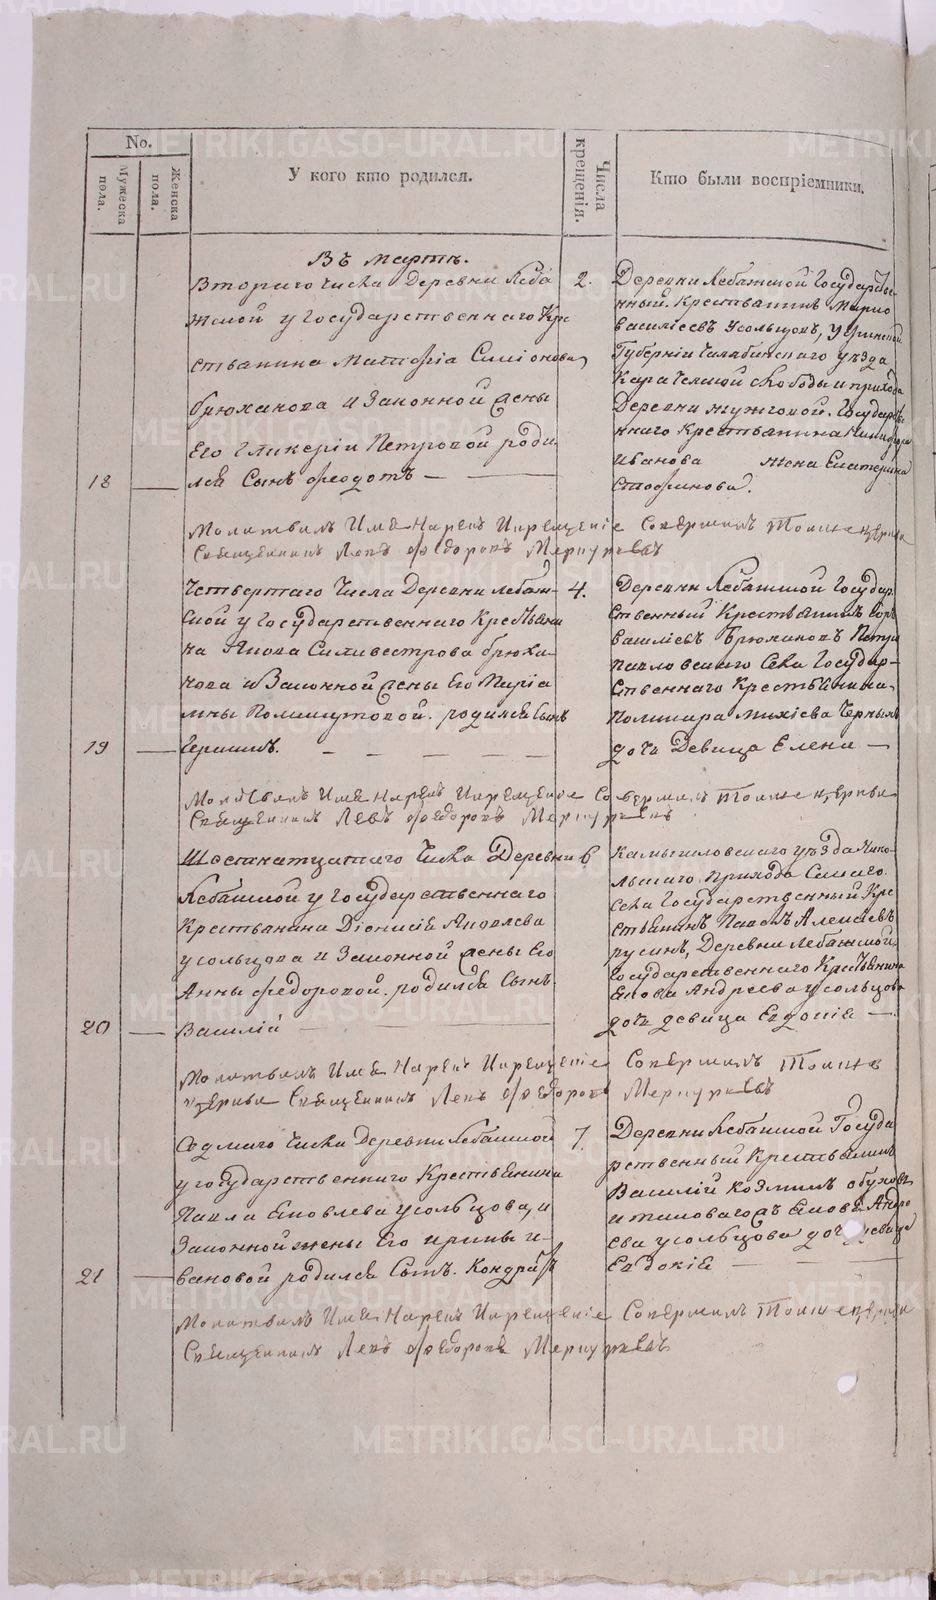 No.
Мужеска пола.
Женска пола.
У кого кто родился.
Числа крещенія.
Кто были воспріемники.
Въ Мартѣ.
Втораго Числа Деревни Леба
жской у Государственнаго Кре
стьянина Симіонова
Брюханова и Законной жены
Его Гликеріи Петровой роди
18 лся Сынъ Федотъ —
2.
Деревни Лебяжской Государстве
нный Крестьянинъ
Василіевъ Усольцовъ,
Губерніи Челябинскаго уѣзда
слободы и прихода
Деревни Государстве
ннаго Крестьянина
Иванова жена Екатерина
Молитвилъ Имя Нарекъ Икрещеніе Совершилъ Тояже церкви
Священникъ Левъ Федоровъ
Четвертаго Числа Деревни Лебяж
ской у Государственнаго Крестьяни
на Якова Силивестрова Брюха
нова и Законной жены Его Марiа
мны родился Сынъ
19 —
4.
Деревни Лебяжской Государ
ственный Крестьянинъ
Василіевъ Брюхановъ Петро
павловскаго Села Государ
ственнаго Крестьянина
дочь Девица Елена —
Молитвилъ Имя Нарекъ Икрещеніе Совершилъ Тояже церкви
Священникъ Левъ Федоровъ
Числа Деревни
Лебяжской у Государственнаго
Крестьянина Діонисія Яковлева
Усольцова и Законной жены Его
Анны Федоровой. родился Сынъ
20 — Василій —
6
Камышловскаго уѣзда Нико
льскаго прихода
Села Государственный Кре
стьянинъ Павелъ Алексѣевъ
Русинъ, Деревни Лебяжской
Государственнаго Крестьянина
Якова Андреева Усольцова
дочь девица Евдокія —
Молитвилъ Имя Нарекъ Икрещеніе Совершилъ Тояже
церкви Священникъ Левъ Федоровъ
Седмаго Числа Деревни Лебяжской
у Государственнаго Крестьянина
Павла Яковлева Усольцова, и
Законной жены Его Ирины И
21 — вановой родился Сынъ. Кондратъ
7.
Деревни Лебяжской Госуда
рственный Крестьянинъ
Василій Козминъ Обуховъ
и таковагожъ Якова Андре
ева Усольцова дочь девица
Евдокія —
Молитвилъ Имя Нарекъ Икрещеніе Совершилъ Тояже церкви
Священникъ Левъ Федоровъ
METRIKI.GASO-URAL.RU